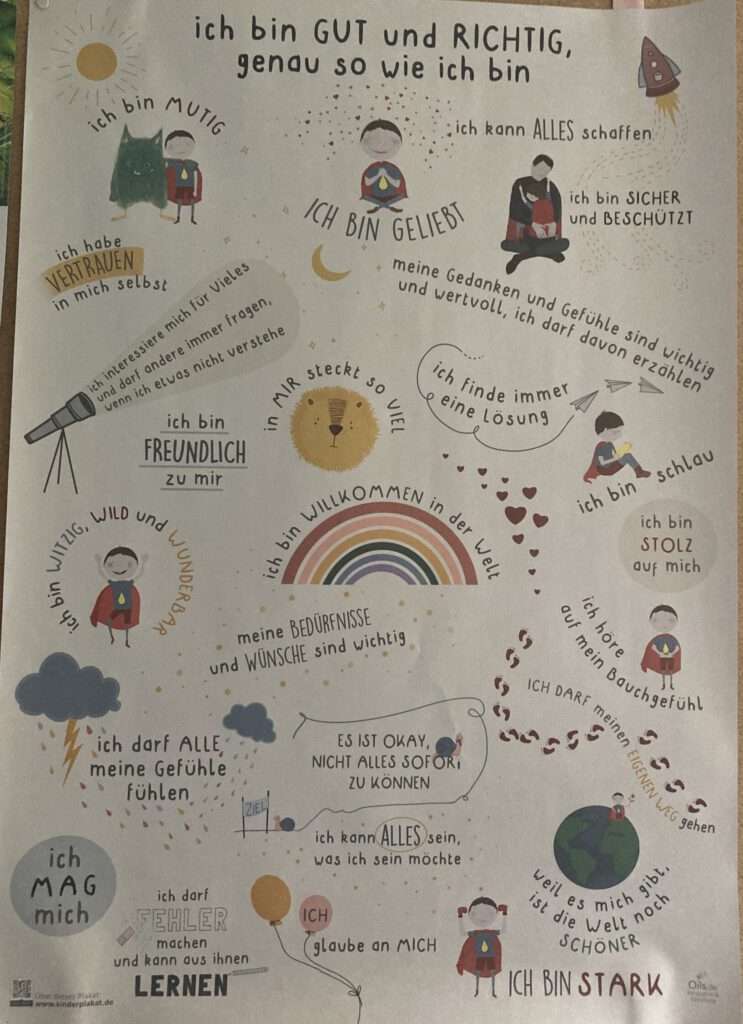 ich bin GUT und RICHTIG,
genau so wie ich bin
ich bin MUTIG
ich kann ALLES schaffen
ICH BIN GELIEBT
ich bin SICHER
und BESCHÜTZT
ich habe
VERTRAUEN
in mich selbst
meine Gedanken und Gefühle sind wichtig
und wertvoll, ich darf davon erzählen
ich interessiere mich für Vieles
und darf andere immer fragen,
wenn ich etwas nicht verstehe
in MIR steckt so VIEL
ich finde immer
eine Lösung
ich bin
FREUNDLICH
zu mir
ich bin schlau
ich bin WITZIG, WILD und WUNDERBAR
ich bin WILLKOMMEN in der Welt
ich bin
STOLZ
auf mich
ich höre
auf mein Bauchgefühl
meine BEDÜRFNISSE
und WÜNSCHE sind wichtig
ICH DARF meinen EIGENEN WEG gehen
ich darf ALLE
meine Gefühle
fühlen
ES IST OKAY,
NICHT ALLES SOFORT
ZU KÖNNEN
ZIEL
ich kann ALLES sein,
was ich sein möchte
weil es mich gibt,
ist die Welt noch
SCHÖNER
ich
MAG
mich
ich darf
FEHLER
machen
und kann aus ihnen
LERNEN
ICH
glaube an MICH
ICH BIN STARK
www.kinderplakat.de